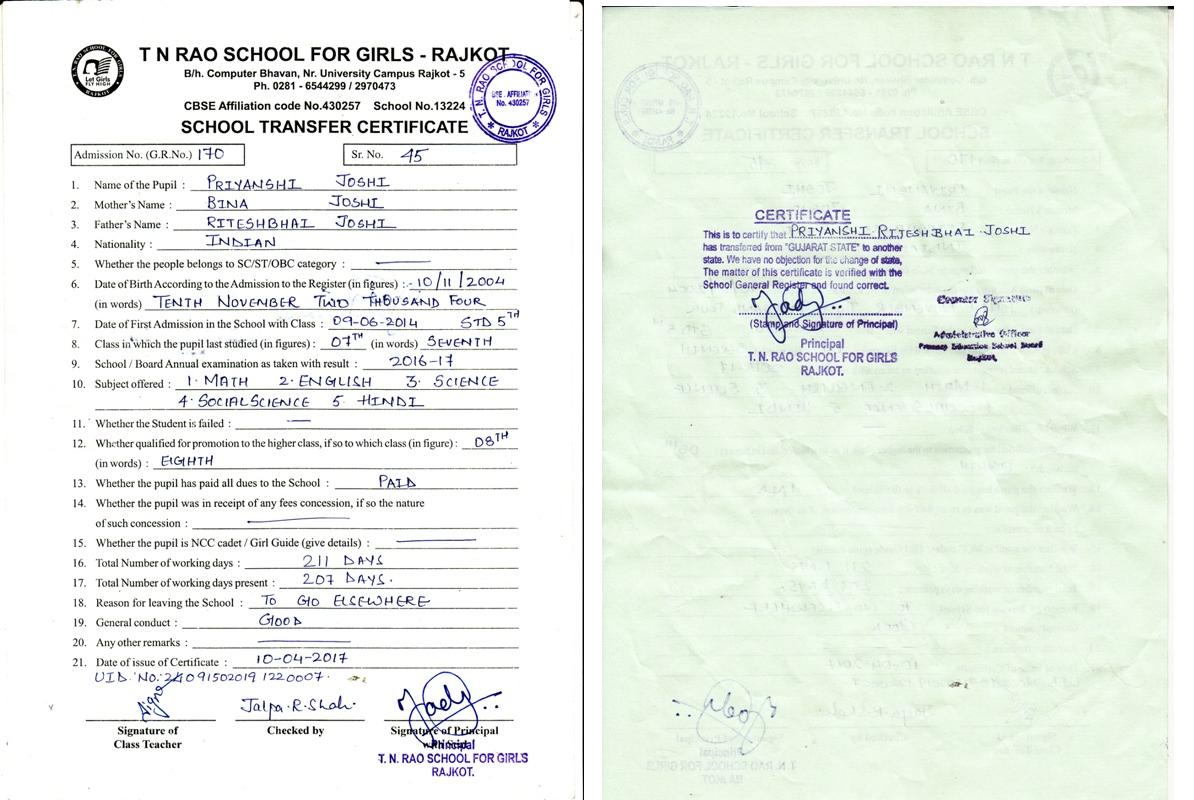 T N RAO SCHOOL FOR GIRLS - RAJKOT
B/h. Computer Bhavan, Nr. University Campus Rajkot - 5
Ph. 0281 - 6544299 / 2970473
CBSE Affiliation code No.430257 School No.13224
SCHOOL TRANSFER CERTIFICATE
T. N. RAO SCHOOL FOR GIRLS
No. 430257
RAJKOT
Let Girls
FLY HIGH
RAJKOT
Admission No. (G.R.No.) 170 Sr. No. 45
1. Name of the Pupil : PRIYANSHI JOSHI
2. Mother's Name : BINA JOSHI
3. Father's Name : RITESHBHAI JOSHI
4. Nationality : INDIAN
5. Whether the people belongs to SC/ST/OBC category :
6. Date of Birth According to the Admission to the Register (in figures) : 10/11/2004
(in words) TENTH NOVEMBER TWO THOUSAND FOUR
7. Date of First Admission in the School with Class : 09-06-2014 STD 5TH
8. Class in which the pupil last studied (in figures) : 07TH (in words) SEVENTH
9. School / Board Annual examination as taken with result : 2016-17
10. Subject offered : 1. MATH 2. ENGLISH 3. SCIENCE
4. SOCIAL SCIENCE 5. HINDI
11. Whether the Student is failed :
12. Whether qualified for promotion to the higher class, if so to which class (in figure) : 08TH
(in words) : EIGHTH
13. Whether the pupil has paid all dues to the School : PAID
14. Whether the pupil was in receipt of any fees concession, if so the nature
of such concession :
15. Whether the pupil is NCC cadet / Girl Guide (give details) :
16. Total Number of working days : 211 DAYS
17. Total Number of working days present : 207 DAYS.
18. Reason for leaving the School : TO GO ELSEWHERE
19. General conduct : GOOD
20. Any other remarks :
21. Date of issue of Certificate : 10-04-2017
UID No: 091502019 1220007.
Jalpa.R.Shah.
Signature of Class Teacher
Checked by
Signature of Principal
Principal
T. N. RAO SCHOOL FOR GIRLS
RAJKOT.
CERTIFICATE
This is to certify that PRIYANSHI RITESHBHAI JOSHI
has transferred from "GUJARAT STATE" to another
state. We have no objection for the change of state,
The matter of this certificate is verified with the
School General Register and found correct.
(Stamp and Signature of Principal)
Principal
T. N. RAO SCHOOL FOR GIRLS
RAJKOT.
Counter Signature
Administrative Officer
Primary Education School Board
Rajkot.